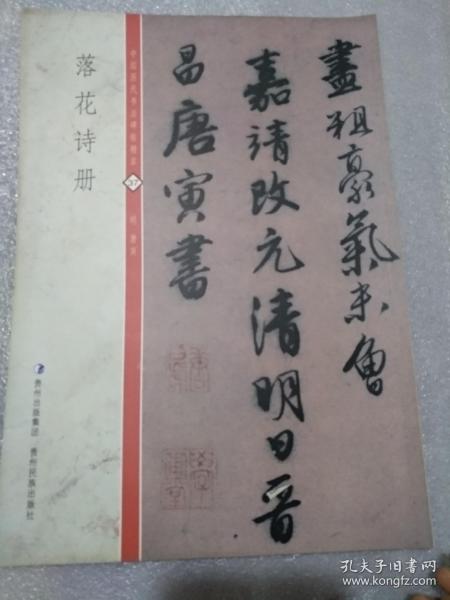 盡粗豪氣未魯
嘉靖改元清明日晉
昌唐寅書
中国历代书法碑帖精品
37
明 唐寅
落花诗册
贵州出版集团 贵州民族出版社
孔夫子旧书网
www.kongfz.com